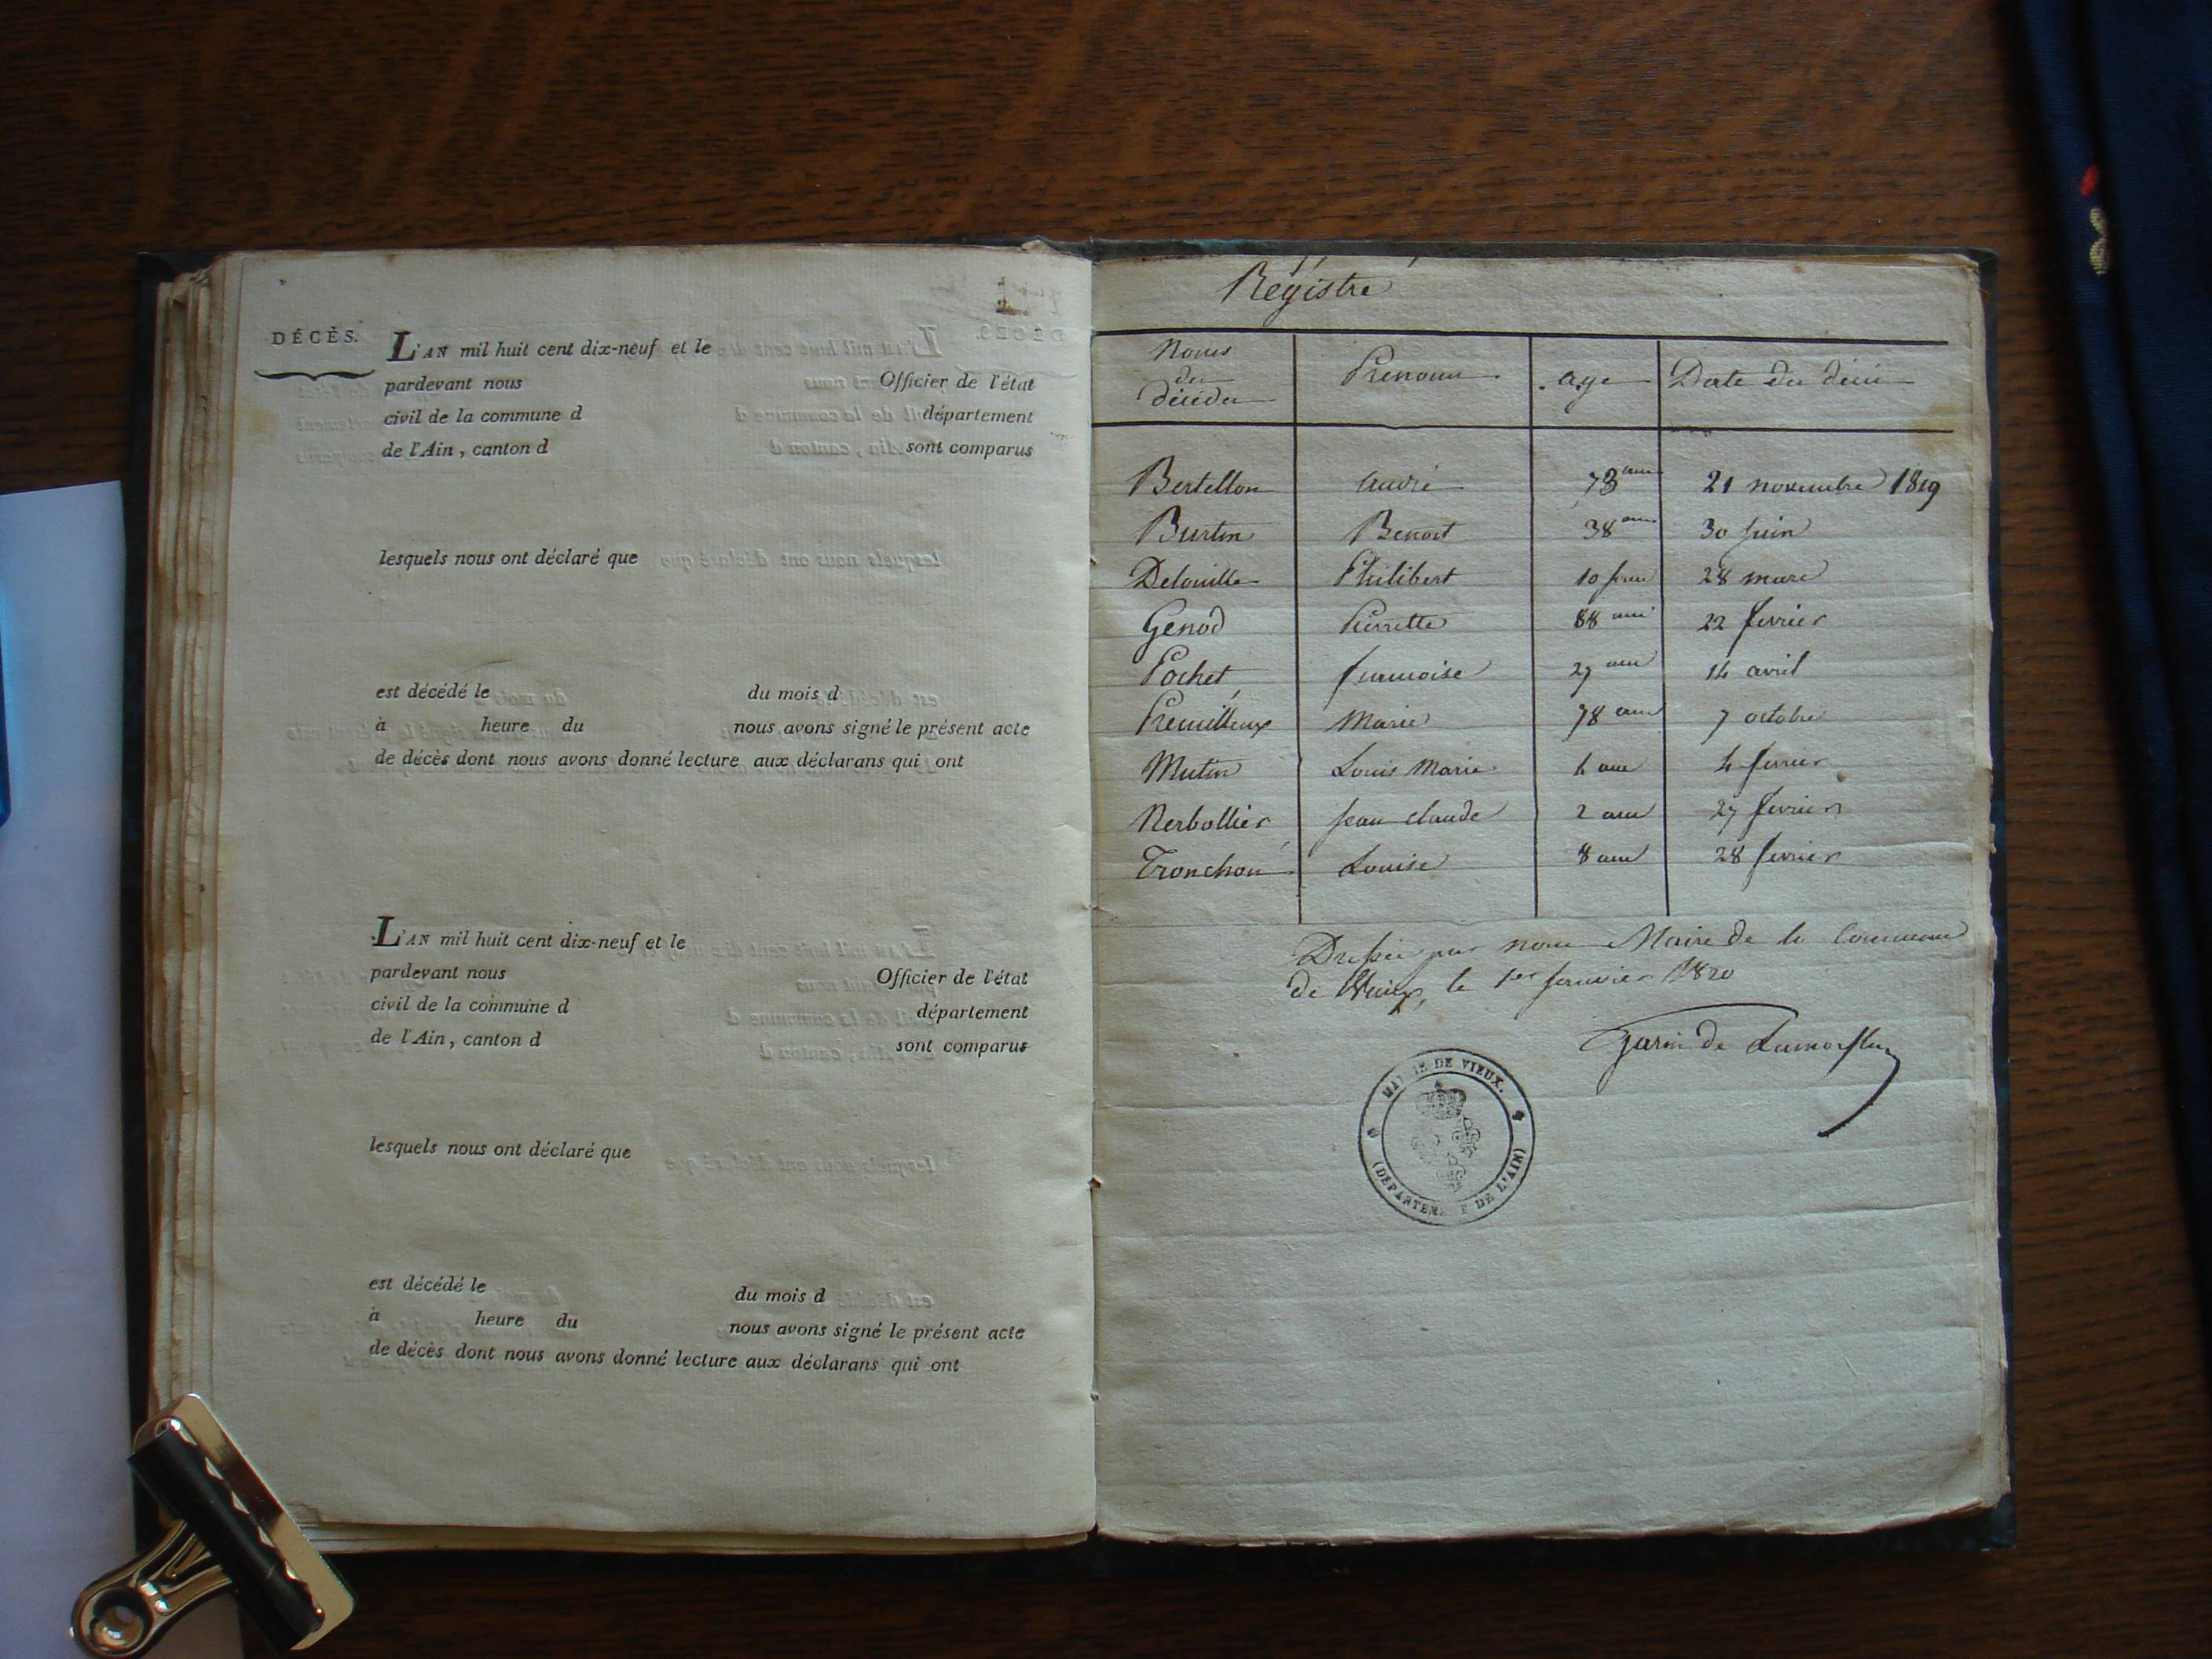 DÉCÈS.
L'AN mil huit cent dix-neuf et le
pardevant nous Officier de l'état
civil de la commune d département
de l'Ain, canton d sont comparus
lesquels nous ont déclaré que
est décédé le du mois d
à heure du nous avons signé le présent acte
de décès dont nous avons donné lecture aux déclarans qui ont
L'AN mil huit cent dix-neuf et le
pardevant nous Officier de l'état
civil de la commune d département
de l'Ain, canton d sont comparus
lesquels nous ont déclaré que
est décédé le du mois d
à heure du nous avons signé le présent acte
de décès dont nous avons donné lecture aux déclarans qui ont
Régistre
Noms
des Prénoms age Date du décès
décédés
Bertellon andré 73 ans 21 novembre 1819
Burtin Benoit 38 ans 30 juin
Philibert 10 jours 28 mars
Genod Pierrette 88 ans 22 fevrier
Pochet francoise 27 ans 14 avril
Marie 78 ans 7 octobre
Mutin Louis Marie 4 ans 4 fevrier
Nerbollier jean claude 2 ans 27 fevrier
Tronchon Louise 8 ans 28 fevrier
Dressée par nous Maire de la Commune
de Vieux, le 1er janvier 1820
garin de
MAIRIE DE VIEUX.
(DEPARTEMT DE L'AIN)